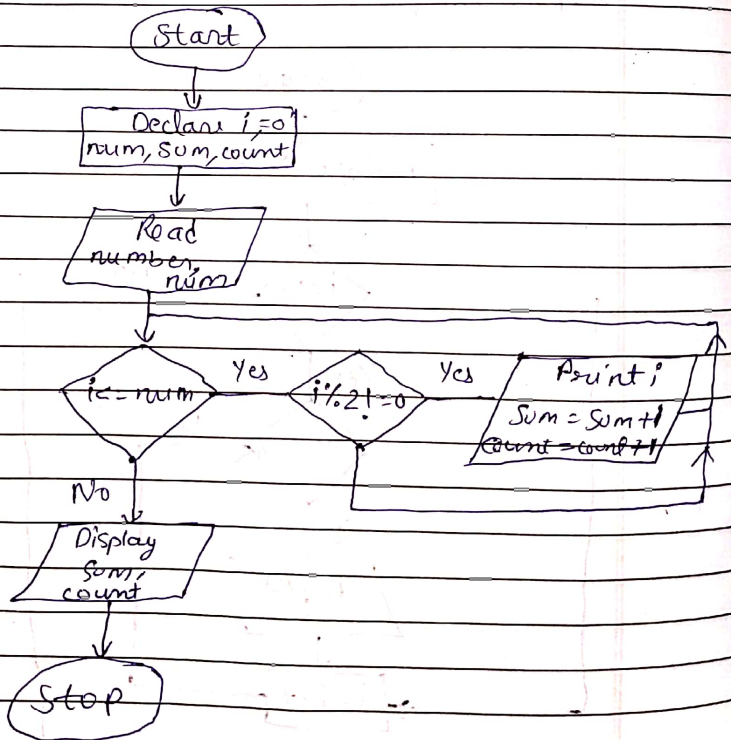 Start
Declare i=0
num, sum, count
Read
number,
num
i<=num
Yes
i%2!=0
Yes
Print i
Sum = Sum+1
count=count+1
No
Display
sum,
count
Stop